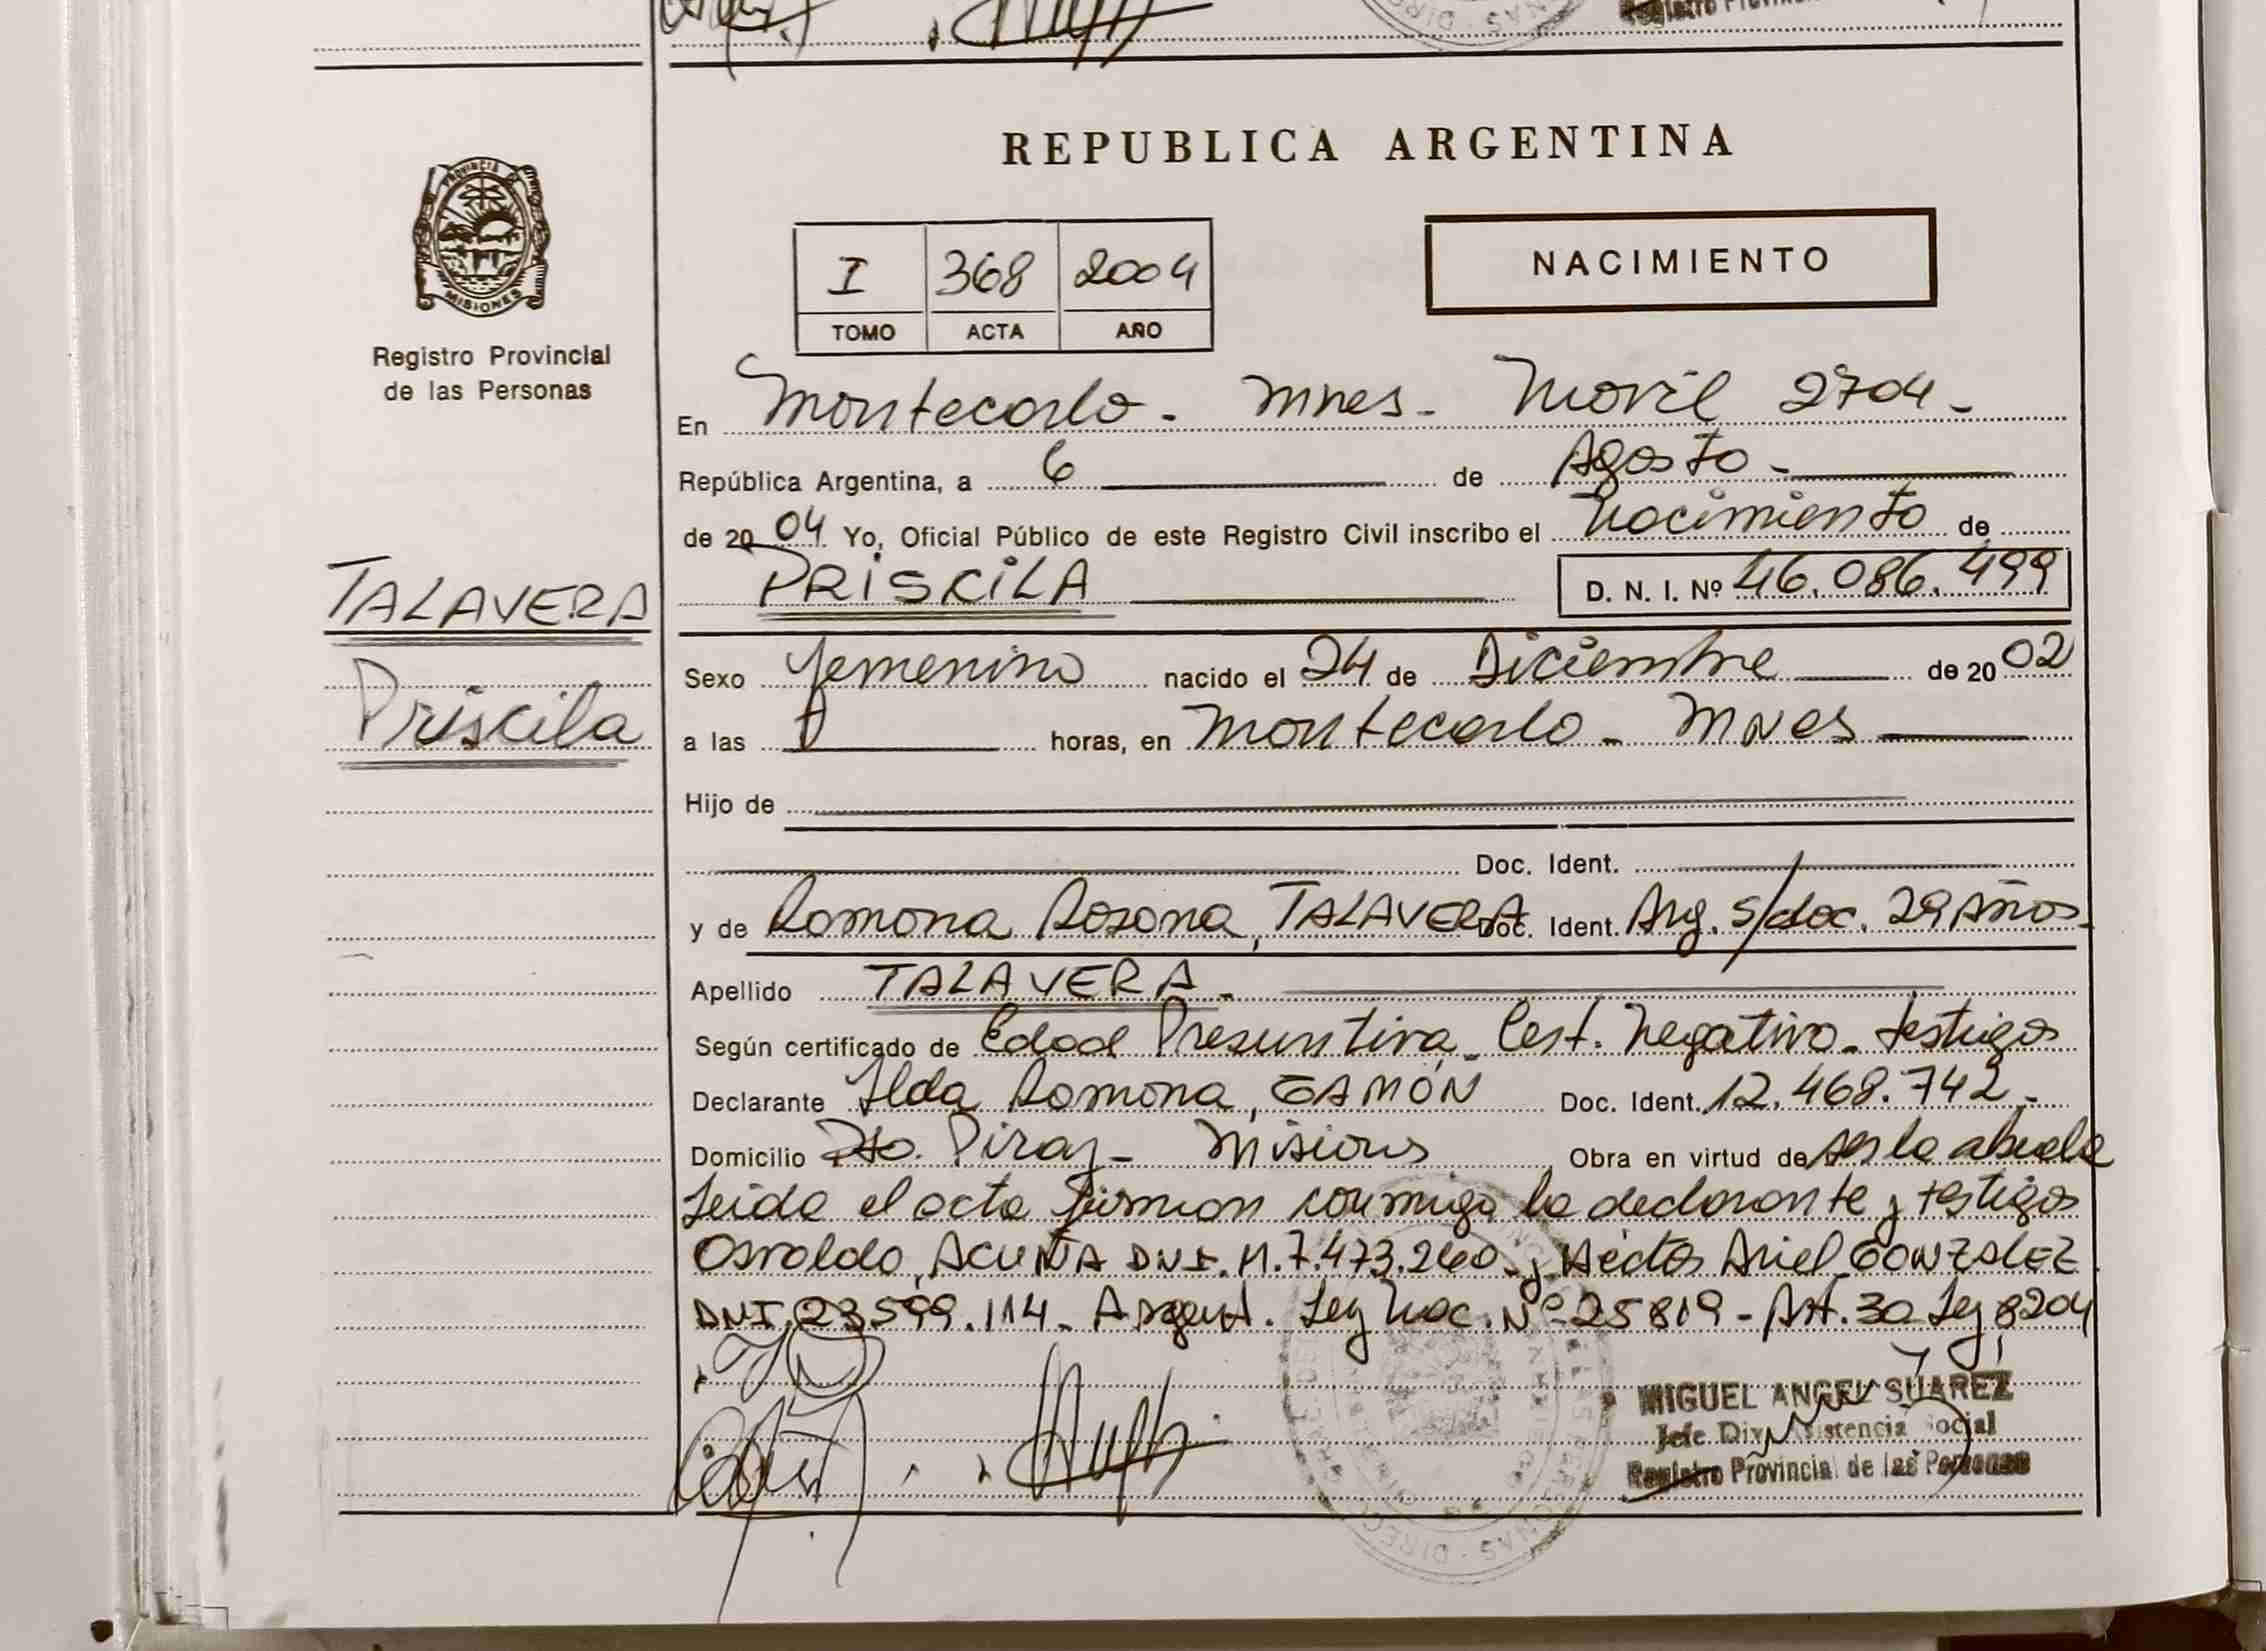 Registro Provincial
REPUBLICA ARGENTINA
PROVINCIA DE
MISIONES
Registro Provincial
de las Personas
I 368 2004
TOMO ACTA AÑO
NACIMIENTO
En Montecarlo - Mnes - Movil 2704 -
República Argentina, a 6 de Agosto -
de 2004 Yo, Oficial Público de este Registro Civil inscribo el Nacimiento de
PRISCILA D. N. I. Nº 46.086.499
TALAVERA
Priscila
Sexo femenino nacido el 24 de Diciembre de 2002
a las horas, en Montecarlo - Mnes
Hijo de
Doc. Ident.
y de Ramona Rosana, TALAVERA Doc. Ident. Arg. s/doc. 29 Años -
Apellido TALAVERA -
Según certificado de Edad Presuntiva - Cert. Negativo - testigos
Declarante Ilda Ramona, GAMÓN Doc. Ident. 12.468.742 -
Domicilio Pto. Piray - Misiones Obra en virtud de ser la abuela
Leida el acta firman conmigo la declarante y testigos
Osvaldo, ACUÑA DNI. M. 7.473.260 - y Héctor Ariel GONZALEZ
DNI. 23.599.114 - Argent. Ley Nac. Nº 25819 - Art. 30 Ley 8204
MIGUEL ANGEL SUAREZ
Jefe Div. Asistencia Social
Registro Provincial de las Personas